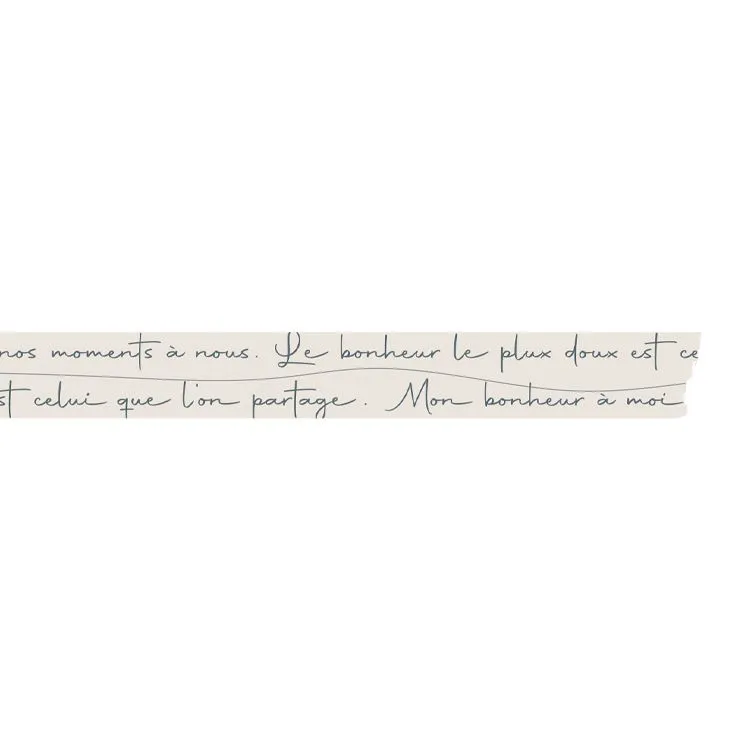 nos moments à nous. Le bonheur le plux doux est ce
st celui que l'on partage. Mon bonheur à moi